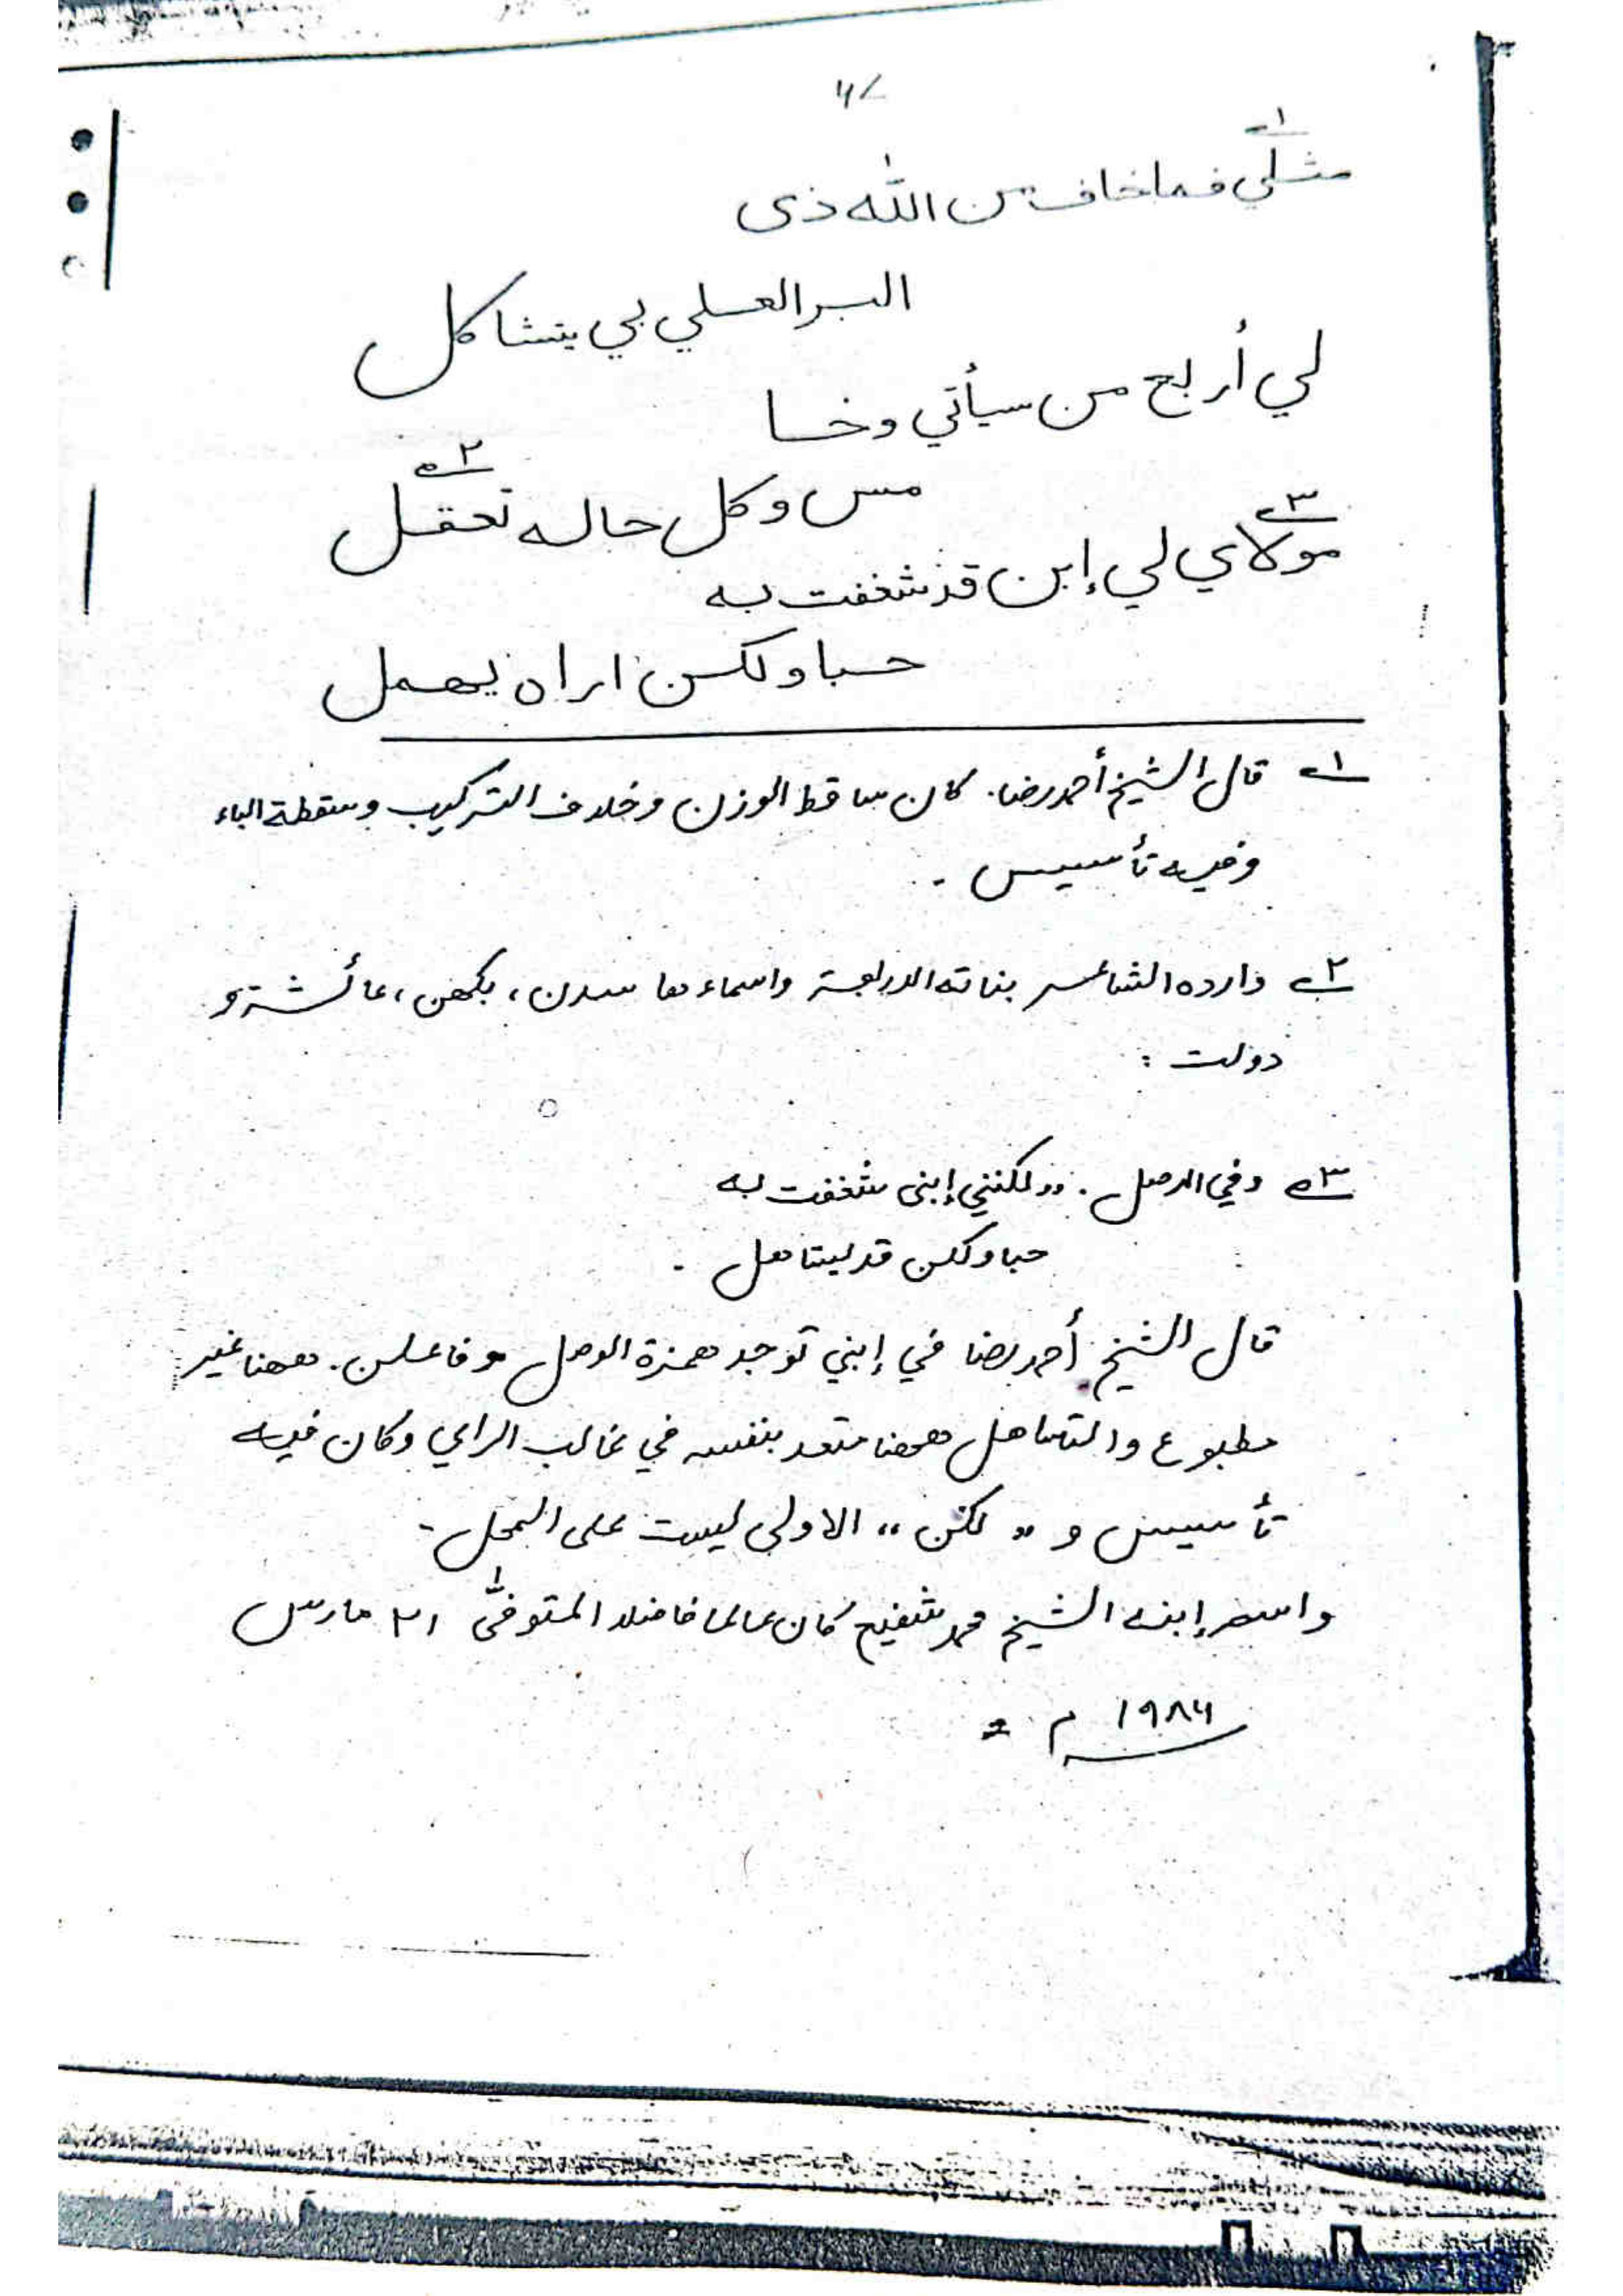 مثلي فما خاف من اللّٰه ذى
البر العلي بي يتشاكل
لي أربع من سيأتي وخا
مس وكل حاله تعقل
مولاي لي إبن قد شغفت به
حبا ولكن اراه يهمل
١ قال الشيخ أحمد رضا. كان ساقط الوزن وخلاف التركيب وسقطة الباء
وفيه تأسيس -
٢ واراده الشاعر بناته الاربعة واسماءها ، بكهن ، عائشة و
دولت :
٣ وفي الاصل. "ولكنني إبنى شغفت به
حبا ولكن قد يتاهل -
قال الشيخ أحمد رضا في إبني توجد همزة الوصل وفاعلن. ههنا غير
مطبوع والتساهل ههنا متعد بنفسه في غالب الراي وكان فيه
تأسيس و "لكن" الاولى ليست على المحل -
واسم إبنه الشيخ محمد شفيع كان عالما فاضلا المتوفىٰ ٢١ مارس
١٩٨٦ م =